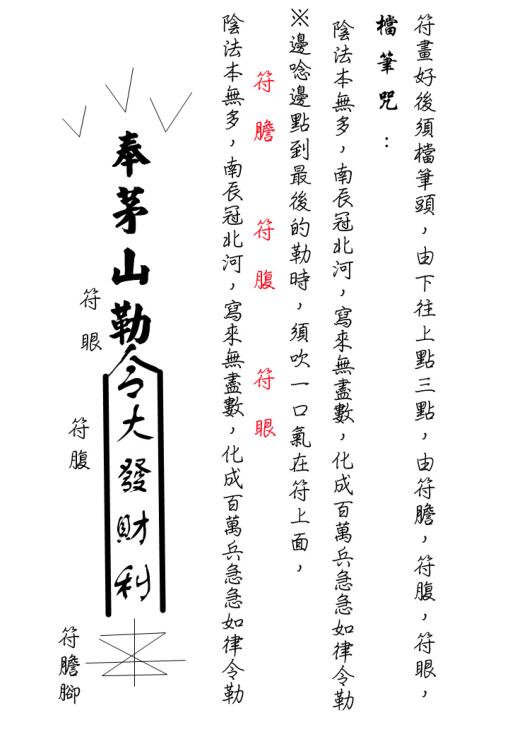 符畫好後須檔筆頭，由下往上點三點，由符膽，符腹，符眼，
檔筆咒：
陰法本無多，南辰冠北河，寫來無盡數，化成百萬兵急急如律令勒
※邊唸邊點到最後的勒時，須吹一口氣在符上面，
符膽 符腹 符眼
陰法本無多，南辰冠北河，寫來無盡數，化成百萬兵急急如律令勒
奉茅山勒令大發財利
符眼
符腹
符膽腳